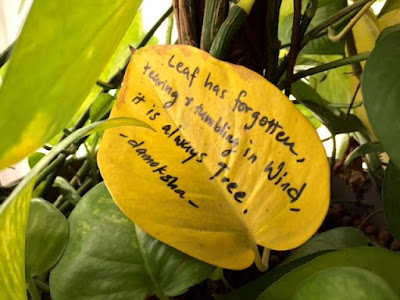 Leaf has forgotten,
tearing & tumbling in wind,
it is always free.
- damoksha -